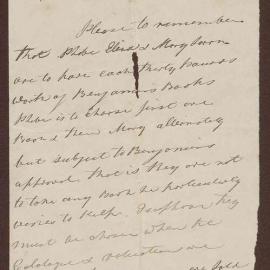 Please to remember
that Phebe Eliza & Mary Dawn
are to have each thirty Pounds
worth of Benjamins Books
Phebe is to choose first one
Book & then Mary alternately
but subject to Benjamins
approval that is they are not
to take any Book he particularly
wishes to keep. I suppose they
must be chosen when the
Catalogue & valuation are
are sold